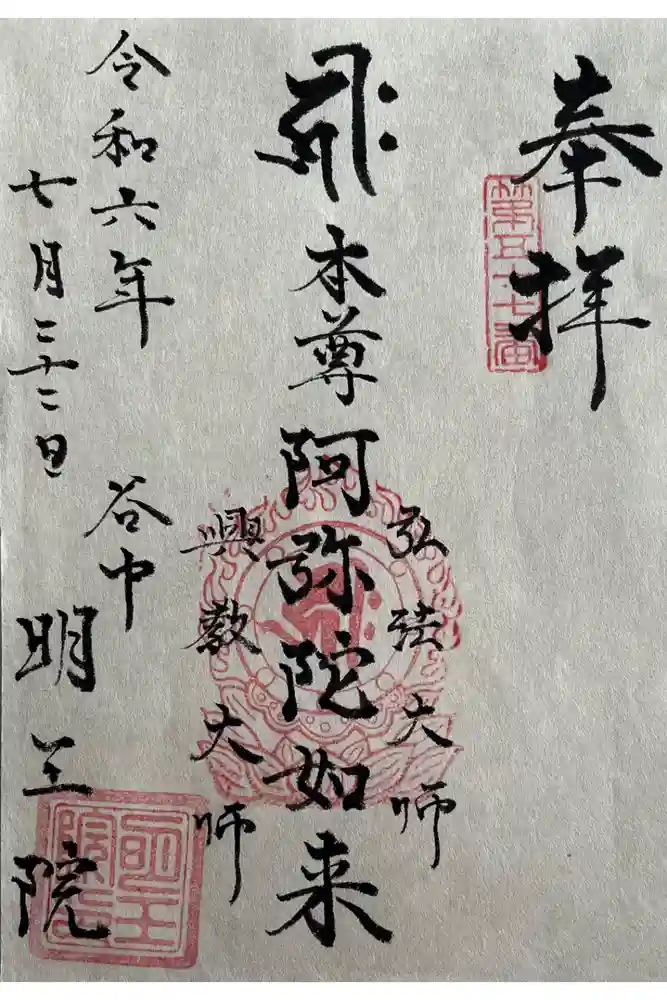 奉拝
第五十七番
弘法大師
本尊阿弥陀如来
興教大師
令和六年
七月二十二日
谷中
明王院